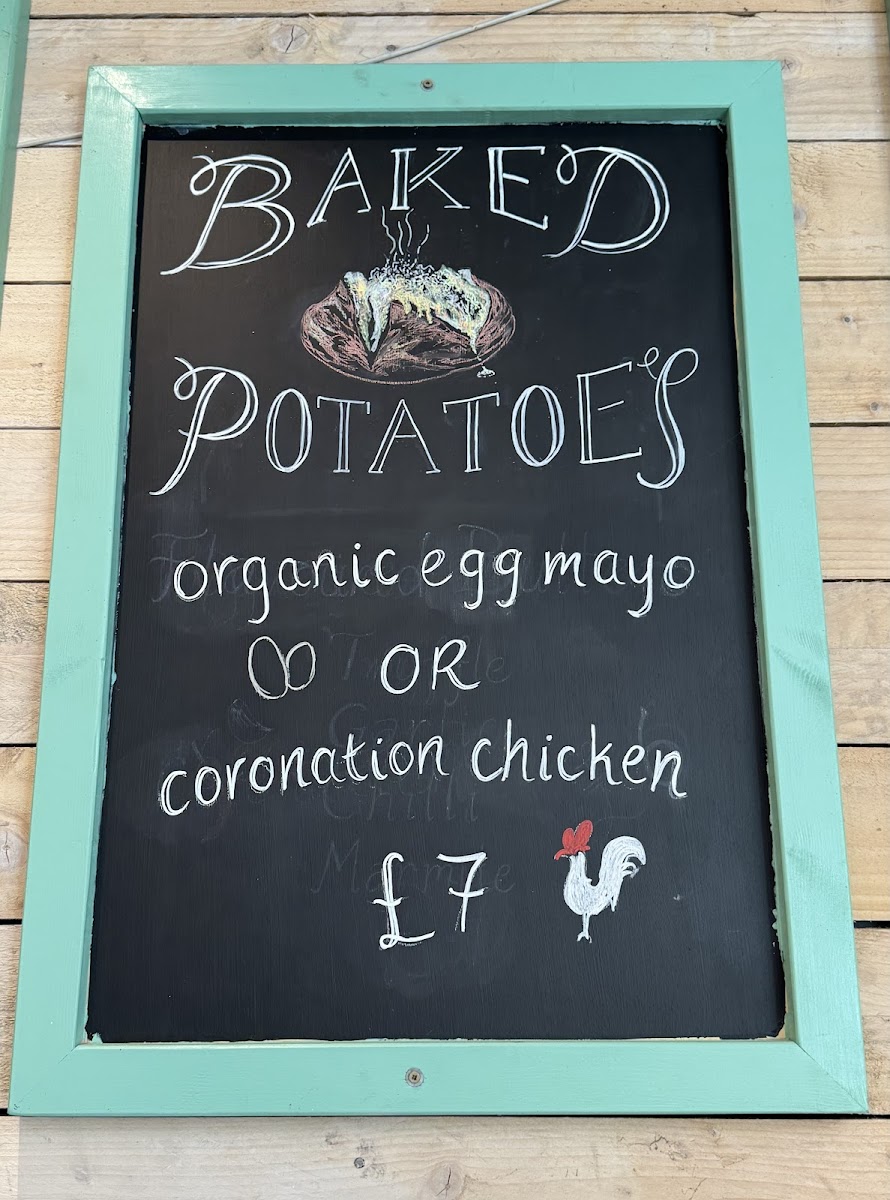 BAKED
POTATOES
organic egg mayo
OR
coronation chicken
£7